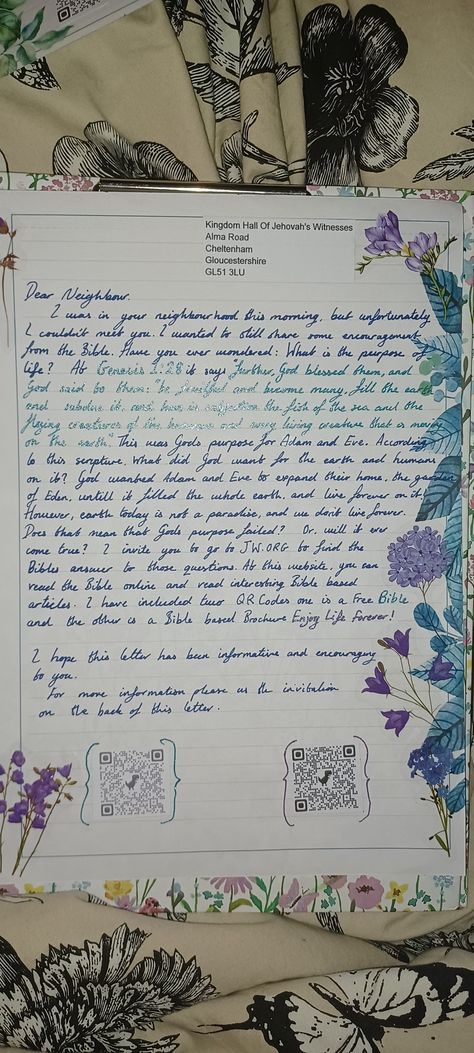 Kingdom Hall Of Jehovah's Witnesses
Alma Road
Cheltenham
Gloucestershire
GL51 3LU
Dear Neighbour.
I was in your neighbourhood this morning, but unfortunately
I couldn't meet you. I wanted to still share some encouragement
from the Bible. Have you ever wondered: What is the purpose of
life? At Genesis 1:28 it says "Further, God blessed them, and
God said to them: "be fruitful and become many, fill the earth
and subdue it, and have in subjection the fish of the sea and the
flying creatures of the heavens and every living creature that is moving
on the earth." This was Gods purpose for Adam and Eve. According
to this scripture, What did God want for the earth and humans
on it? God wanted Adam and Eve to expand their home, the garden
of Eden, untill it filled the whole earth, and live forever on it.
However, earth today is not a paradise, and we don't live forever.
Does that mean that Gods purpose failed? Or, will it ever
come true? I invite you to go to JW.ORG to find the
Bibles answer to those questions. At this website, you can
read the Bible online and read interesting Bible based
articles. I have included two QR Codes one is a Free Bible
and the other is a Bible based Brochure Enjoy Life Forever!
I hope this letter has been informative and encouraging
to you.
For more information please us the invitation
on the back of this letter.